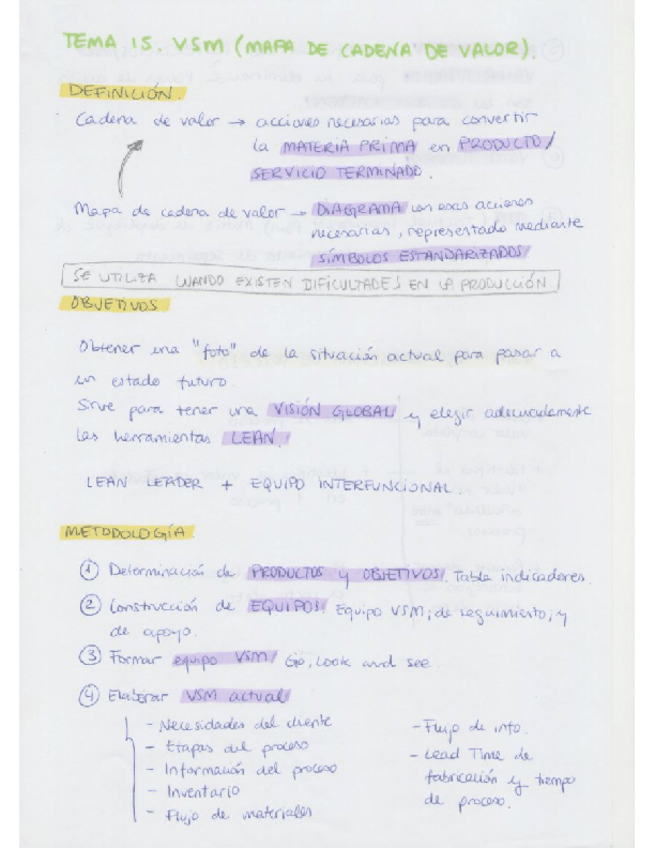 TEMA 15. VSM (MAPA DE CADENA DE VALOR).
DEFINICIÓN.
Cadena de valor → acciones necesarias para convertir
la MATERIA PRIMA en PRODUCTO/
SERVICIO TERMINADO.
Mapa de cadena de valor → DIAGRAMA con esas acciones
necesarias, representado mediante
SÍMBOLOS ESTANDARIZADOS
SE UTILIZA CUANDO EXISTEN DIFICULTADES EN LA PRODUCCIÓN
OBJETIVOS
Obtener una "foto" de la situación actual para pasar a
un estado futuro.
Sirve para tener una VISIÓN GLOBAL y elegir adecuadamente
las herramientas LEAN.
LEAN LEADER + EQUIPO INTERFUNCIONAL.
METODOLOGÍA
① Determinación de PRODUCTOS y OBJETIVOS. Tabla indicadores.
② Construcción de EQUIPOS. Equipo VSM; de seguimiento; y
de apoyo.
③ Formar equipo VSM/ Go, Look and see.
④ Elaborar VSM actual
- Necesidades del cliente
- Etapas del proceso
- Información del proceso
- Inventario
- Flujo de materiales
- Flujo de info.
- Lead Time de
fabricación y tiempo
de proceso.